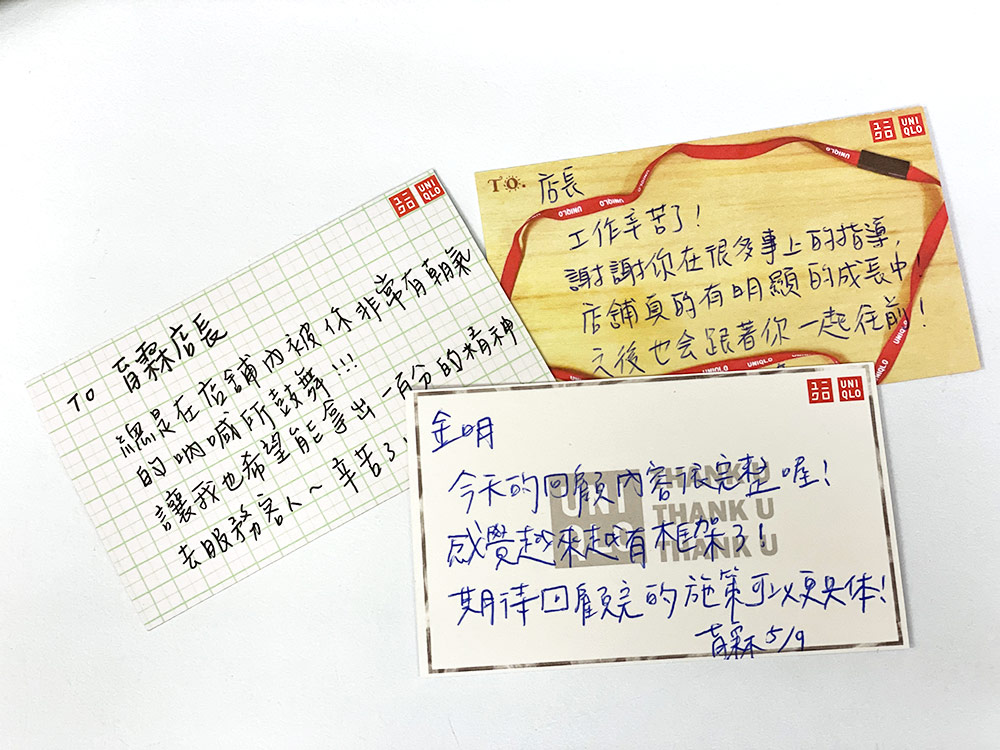 ユニクロ UNIQLO
TO 育霖店長
總是在店舖內被你非常有朝氣
的吶喊所鼓舞!!!
讓我也希望能拿出一百分的精神
去服務客人~ 辛苦了!
ユニクロ UNIQLO
TO. 店長
工作辛苦了!
謝謝你在很多事上的指導,
店舖真的有明顯的成長中!
之後也会跟著你一起往前!
UNIQLO
UNIQLO
UNIQLO
UNIQLO
UNIQLO
ユニクロ UNIQLO
金明
今天的回顧內容很完整喔!
感覺越來越有框架了!
期待回顧完的施策可以更具体!
育霖 5/9
UNIQLO
THANK U
THANK U
THANK U